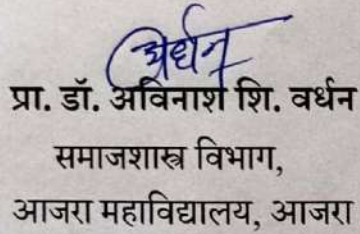 वर्धन
प्रा. डॉ. अविनाश शि. वर्धन
समाजशास्त्र विभाग,
आजरा महाविद्यालय, आजरा